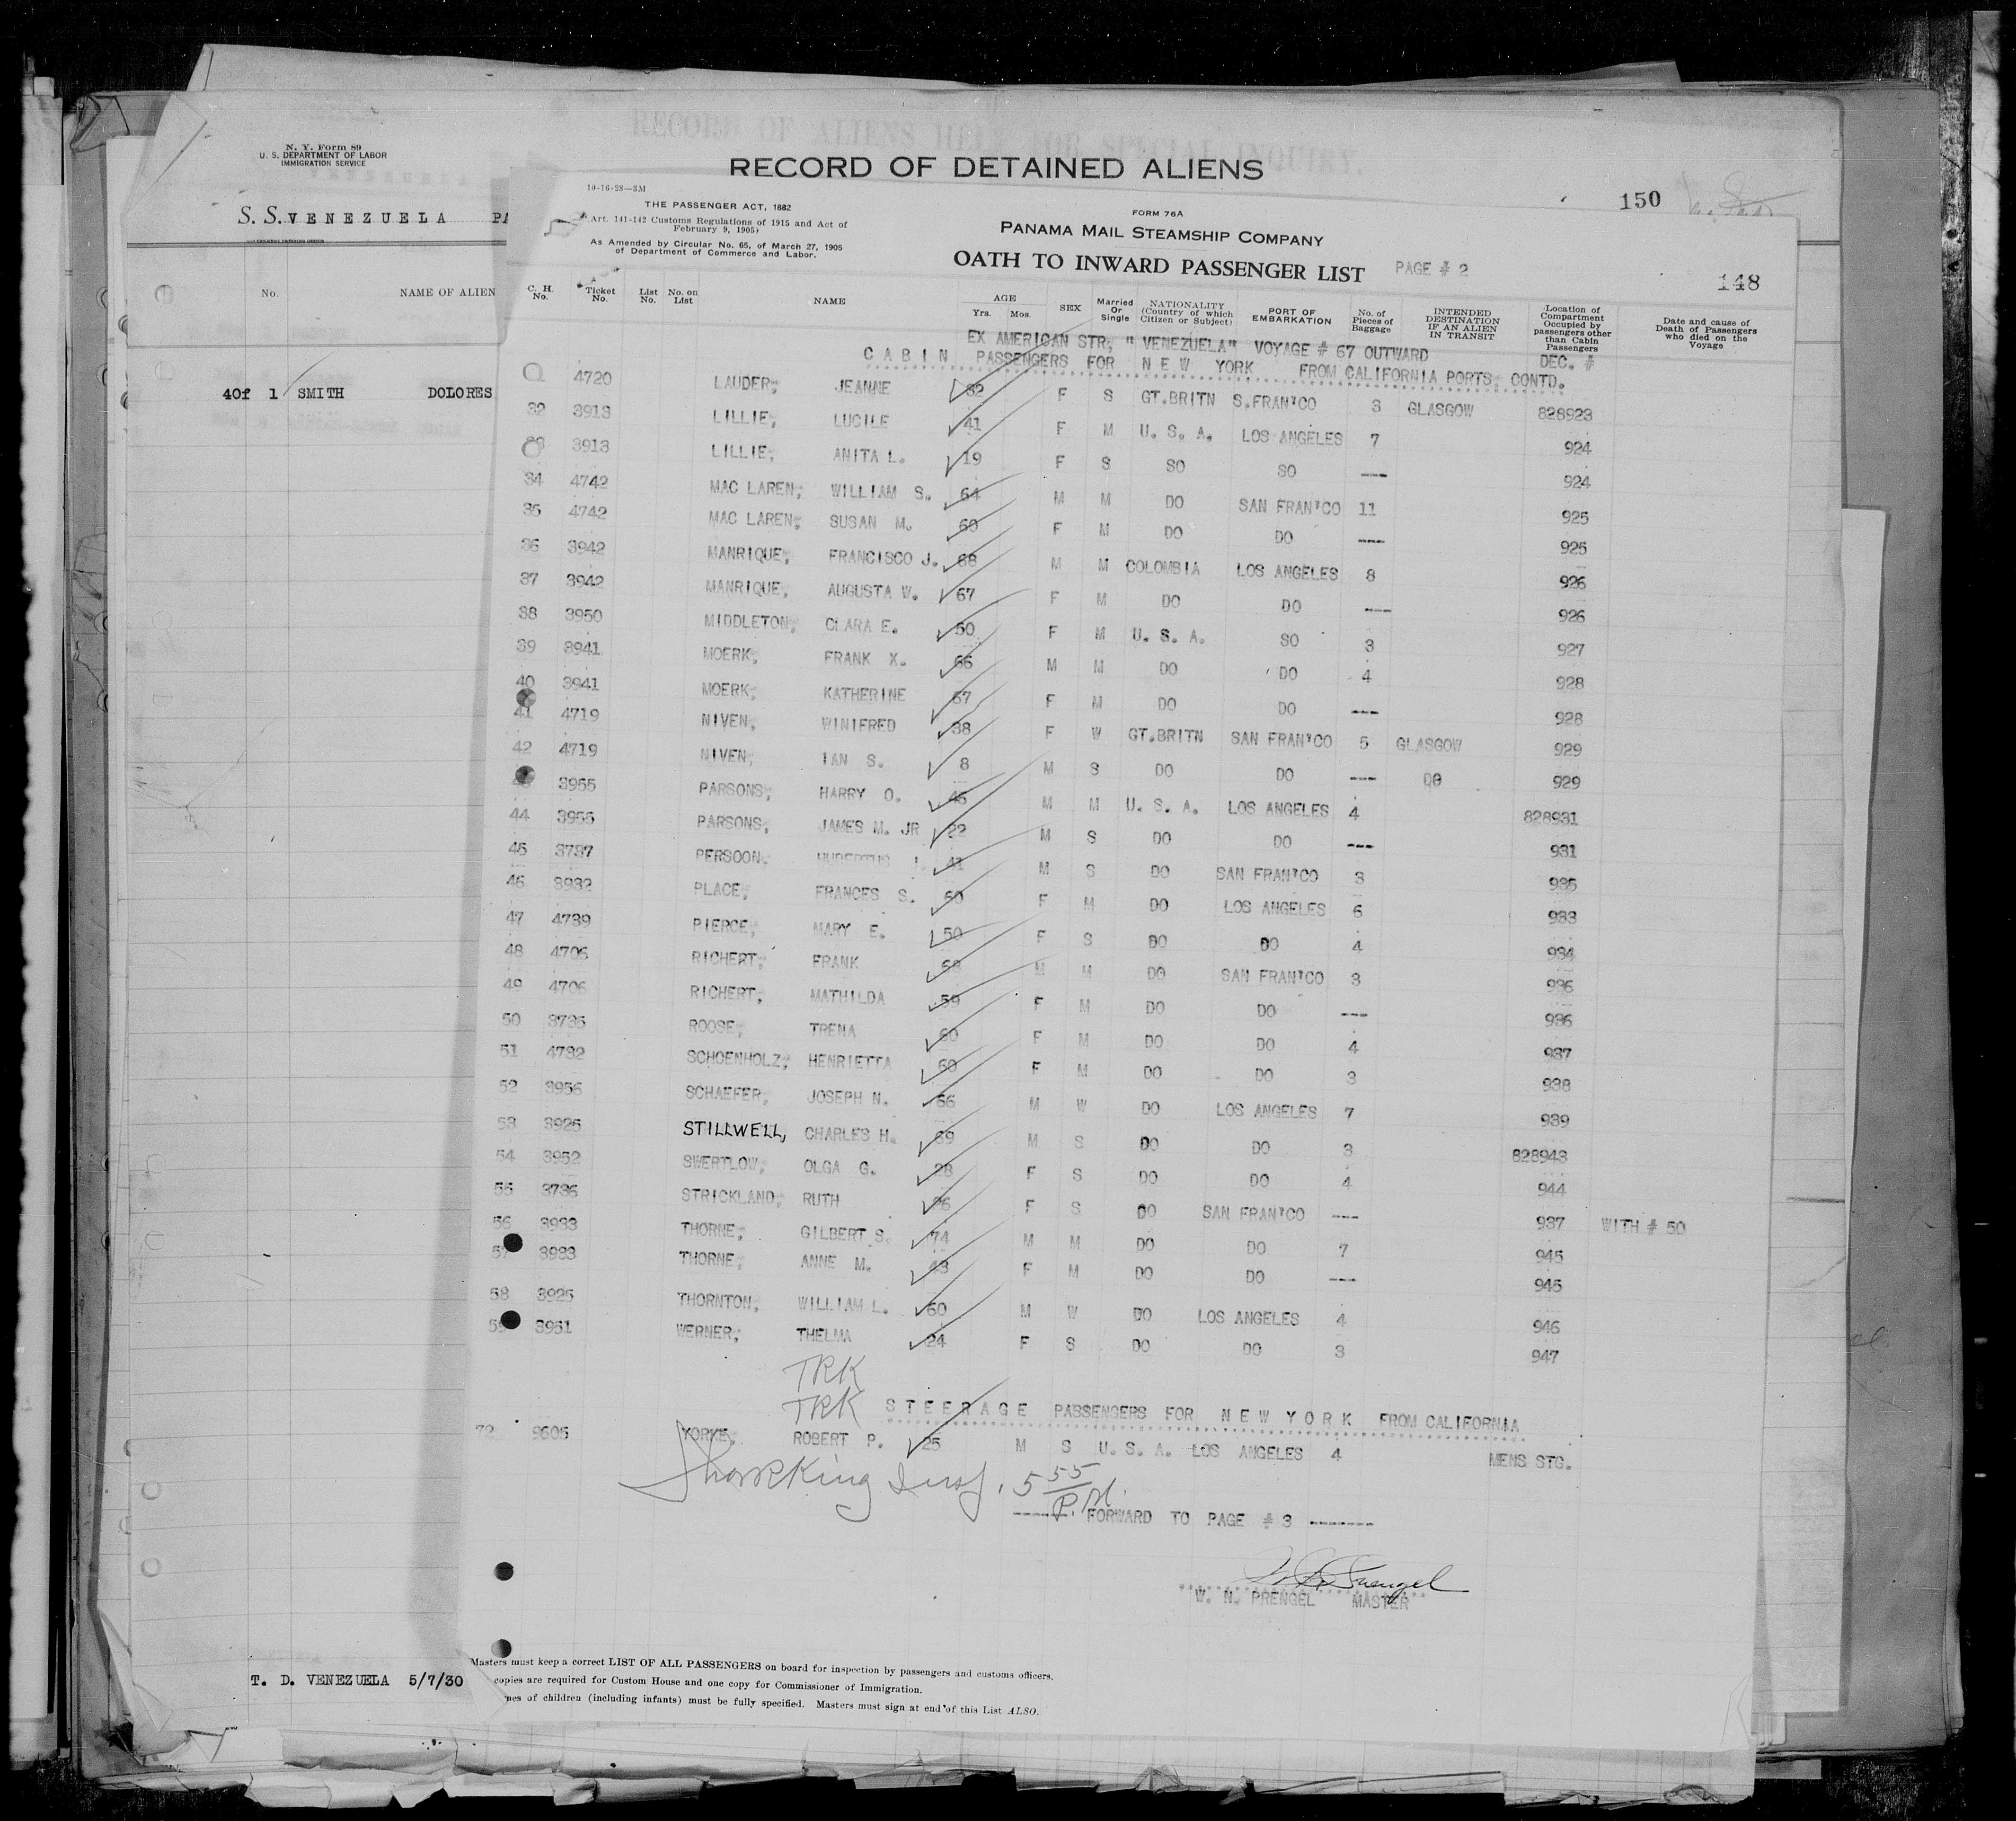 RECORD OF ALIENS HELD FOR SPECIAL INQUIRY.
N. Y. Form 89
U. S. DEPARTMENT OF LABOR
IMMIGRATION SERVICE
RECORD OF DETAINED ALIENS
150
S. S. VENEZUELA PA
No. NAME OF ALIEN
40f 1 SMITH DOLORES
T. D. VENEZUELA 5/7/30
10-16-28—3M
THE PASSENGER ACT, 1882
Art. 141-142 Customs Regulations of 1915 and Act of
February 9, 1905)
As Amended by Circular No. 65, of March 27, 1905
of Department of Commerce and Labor.
FORM 76A
PANAMA MAIL STEAMSHIP COMPANY
OATH TO INWARD PASSENGER LIST PAGE # 2
148
C. H. No. Ticket No. List No. No. on List NAME AGE Yrs. Mos. SEX Married Or Single NATIONALITY (Country of which Citizen or Subject) PORT OF EMBARKATION No. of Pieces of Baggage INTENDED DESTINATION IF AN ALIEN IN TRANSIT Location of Compartment Occupied by passengers other than Cabin Passengers Date and cause of Death of Passengers who died on the Voyage
EX AMERICAN STR, "VENEZUELA" VOYAGE # 67 OUTWARD DEC. #
CABIN PASSENGERS FOR NEW YORK FROM CALIFORNIA PORTS, CONTD.
4720 LAUDER, JEANNE 32 F S GT.BRITN S.FRAN'CO 3 GLASGOW 828923
32 3913 LILLIE, LUCILE 41 F M U. S. A. LOS ANGELES 7 924
33 3913 LILLIE, ANITA L. 19 F S SO SO --- 924
34 4742 MAC LAREN, WILLIAM S. 64 M M DO SAN FRAN'CO 11 925
35 4742 MAC LAREN, SUSAN M. 60 F M DO DO --- 925
36 3942 MANRIQUE, FRANCISCO J. 68 M M COLOMBIA LOS ANGELES 8 926
37 3942 MANRIQUE, AUGUSTA W. 67 F M DO DO --- 926
38 3950 MIDDLETON, CLARA E. 50 F M U. S. A. SO 3 927
39 3941 MOERK, FRANK X. 66 M M DO DO 4 928
40 3941 MOERK, KATHERINE 67 F M DO DO --- 928
41 4719 NIVEN, WINIFRED 38 F W GT.BRITN SAN FRAN'CO 5 GLASGOW 929
42 4719 NIVEN, IAN S. 8 M S DO DO --- DO 929
3955 PARSONS, HARRY O. 45 M M U. S. A. LOS ANGELES 4 828931
44 3955 PARSONS, JAMES M. JR 22 M S DO DO --- 931
45 3737 PERSOON, HUBERTUS 41 M S DO SAN FRAN'CO 3 935
46 3932 PLACE, FRANCES S. 60 F M DO LOS ANGELES 6 933
47 4739 PIERCE, MARY E. 50 F S DO DO 4 934
48 4706 RICHERT, FRANK M M DO SAN FRAN'CO 3 936
49 4706 RICHERT, MATHILDA 59 F M DO DO --- 936
50 3735 ROOSE, TRENA 60 F M DO DO 4 937
51 4732 SCHOENHOLZ, HENRIETTA 60 F M DO DO 3 938
52 3956 SCHAEFER, JOSEPH N. 66 M W DO LOS ANGELES 7 939
53 3925 STILLWELL, CHARLES H. 69 M S DO DO 3 828943
54 3952 SWERTLOW, OLGA G. 28 F S DO DO 4 944
55 3736 STRICKLAND, RUTH F S DO SAN FRAN'CO --- 937 WITH # 50
56 3933 THORNE, GILBERT S. 74 M M DO DO 7 945
57 3933 THORNE, ANNE M. 43 F M DO DO --- 945
58 3925 THORNTON, WILLIAM L. 60 M W DO LOS ANGELES 4 946
59 3951 WERNER, THELMA 24 F S DO DO 3 947
TRK
TRK STEERAGE PASSENGERS FOR NEW YORK FROM CALIFORNIA
72 9605 YORKE, ROBERT P. 25 M S U. S. A. LOS ANGELES 4 MENS STG.
Insp. 5 55 P.M.
----- FORWARD TO PAGE # 3 -------
W. N. PRENGEL MASTER
Masters must keep a correct LIST OF ALL PASSENGERS on board for inspection by passengers and customs officers.
copies are required for Custom House and one copy for Commissioner of Immigration.
mes of children (including infants) must be fully specified. Masters must sign at end of this List ALSO.